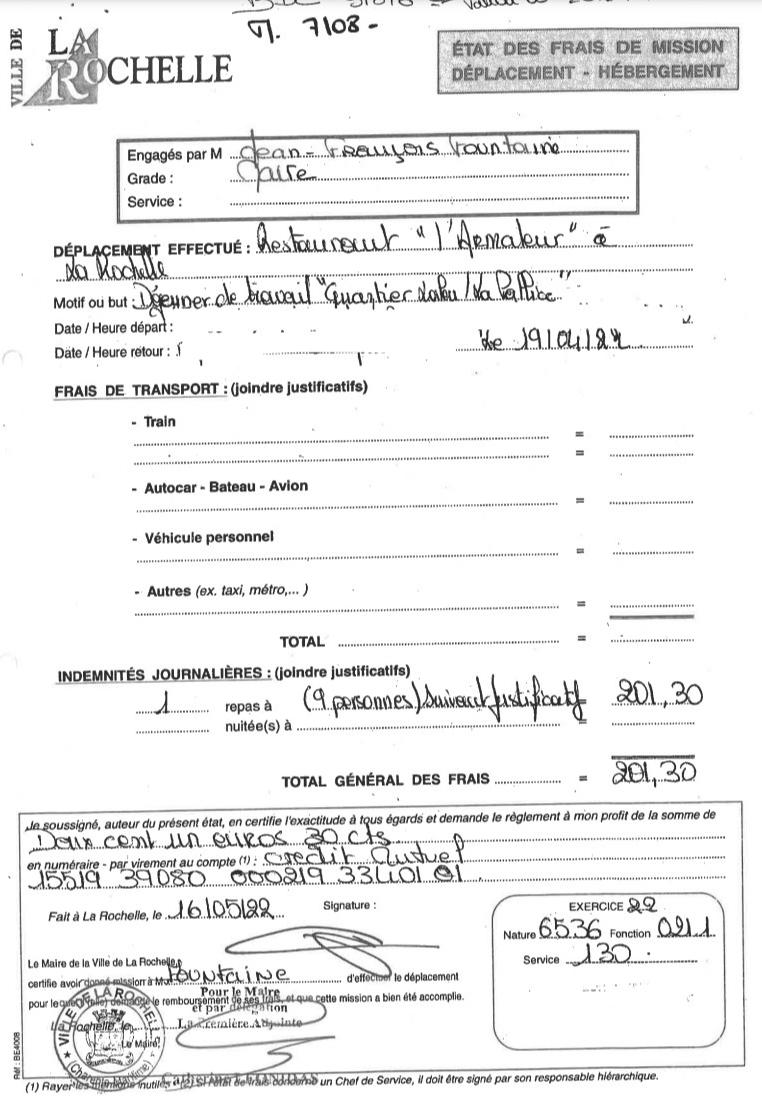 VILLE DE
LA ROCHELLE
7108 -
ÉTAT DES FRAIS DE MISSION
DÉPLACEMENT - HÉBERGEMENT
Engagés par M Jean-François Fountaine
Grade : Maire
Service :
DÉPLACEMENT EFFECTUÉ : Restaurant "l'Armateur" à
La Rochelle
Motif ou but : Déjeuner de travail "Quartier Laleu / La Pallice"
Date / Heure départ :
Date / Heure retour :
le 19/04/22
FRAIS DE TRANSPORT : (joindre justificatifs)
- Train
=
=
- Autocar - Bateau - Avion
=
- Véhicule personnel
=
- Autres (ex. taxi, métro,... )
=
TOTAL =
INDEMNITÉS JOURNALIÈRES : (joindre justificatifs)
1 repas à (9 personnes) suivant justificatif 201,30
nuitée(s) à =
TOTAL GÉNÉRAL DES FRAIS = 201,30
Je soussigné, auteur du présent état, en certifie l'exactitude à tous égards et demande le règlement à mon profit de la somme de
Deux cent un euros 30 cts
en numéraire - par virement au compte (1) : Crédit Mutuel
15519 39080 000219 33401 01
Fait à La Rochelle, le 16/05/22 Signature :
EXERCICE 22
Nature 6536 Fonction 0211
Service 130
Le Maire de la Ville de La Rochelle,
certifie avoir donné mission à M. Fountaine d'effectuer le déplacement
pour lequel demande le remboursement de ses frais, et que cette mission a bien été accomplie.
Pour le Maire
et par délégation
La Première Adjointe
La Rochelle, le
Le Maire,
VILLE LA ROCHELLE
(Charente-Maritime)
(1) Rayer les mentions inutiles (2) Si l'état de frais concerne un Chef de Service, il doit être signé par son responsable hiérarchique.
Réf : BE4008